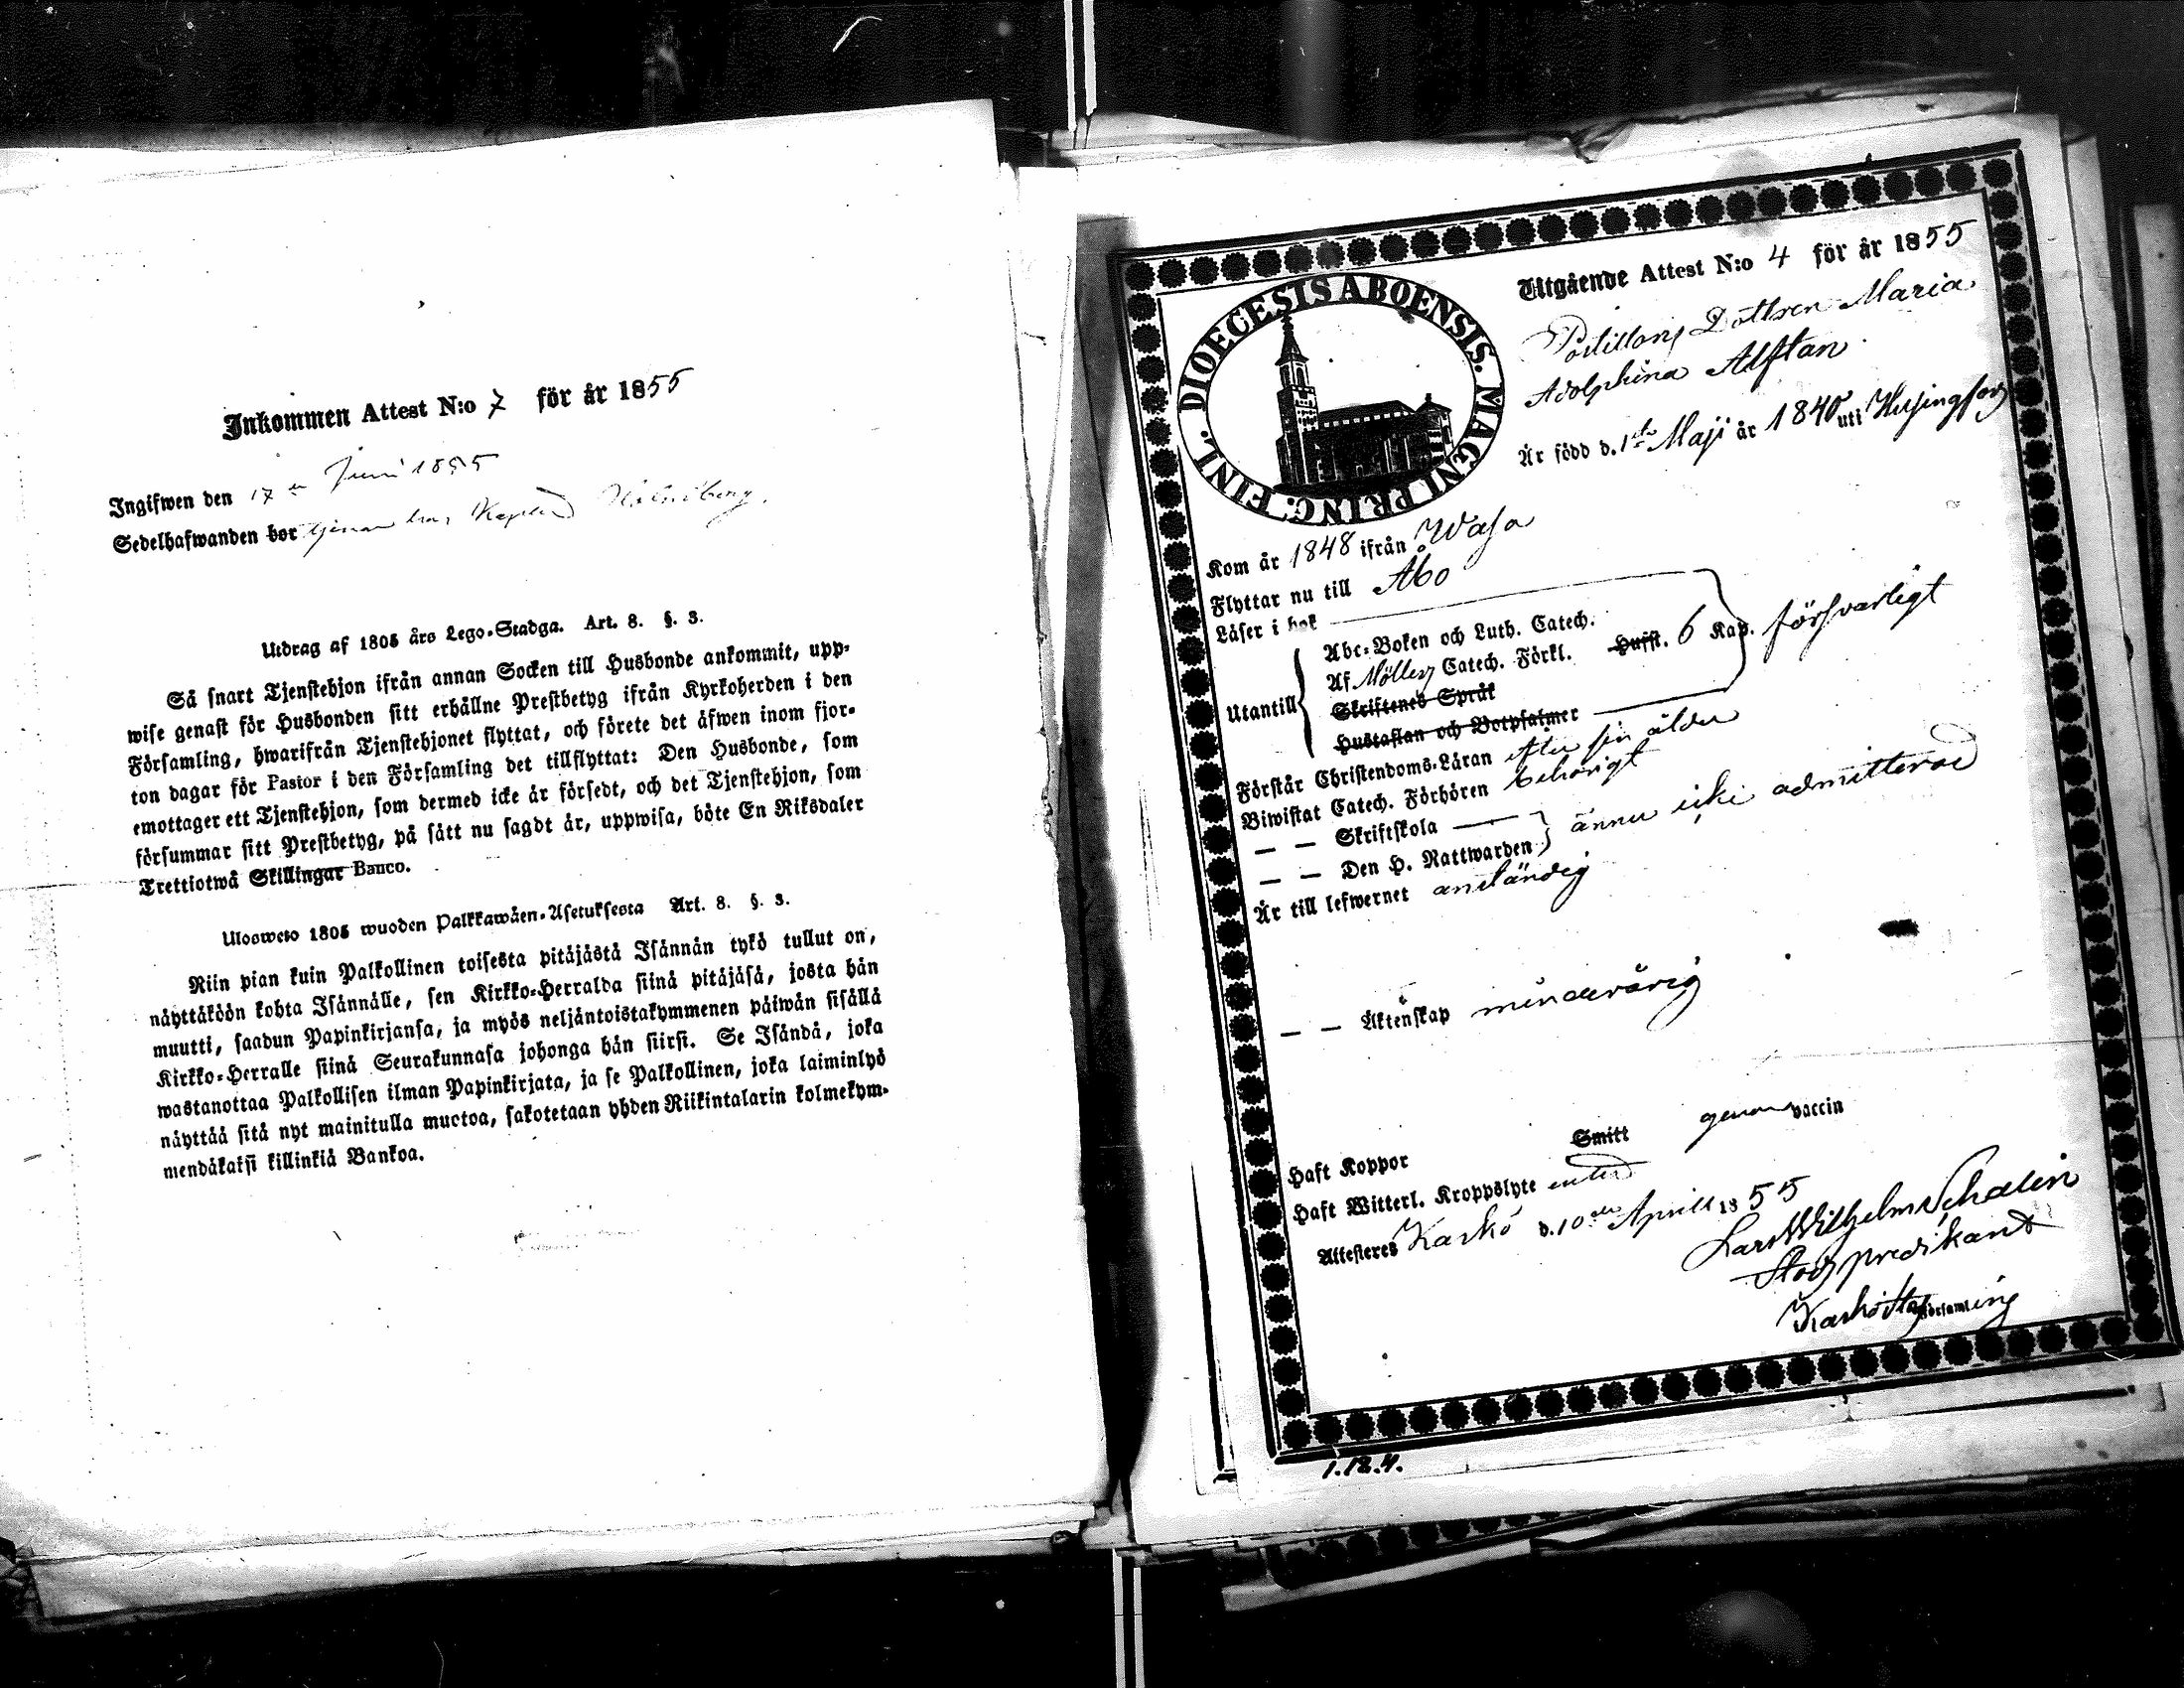 Inkommen Attest N:o 7 för år 1855
Ingifwen den 17de Juni 1855
Sedelhafwanden bor tjenar hos
Utdrag af 1805 års Lego-Stadga. Art. 8. §. 3.
Så snart Tjenstehjon ifrån annan Socken till Husbonde ankommit, upp-
wise genast för Husbonden sitt erhållne Prestbetyg ifrån Kyrkoherden i den
Församling, hwarifrån Tjenstehjonet flyttat, och förete det åfwen inom fjor-
ton dagar för Pastor i den Församling det tillflyttat: Den Husbonde, som
emottager ett Tjenstehjon, som dermed icke är försedt, och det Tjenstehjon, som
försummar sitt Prestbetyg, på sätt nu sagdt är, uppwisa, böte En Riksdaler
Trettiotwå Skillingar Banco.
Ulosweto 1805 wuoden Palkkawåen-Asetuksesta Art. 8. §. 3.
Niin pian kuin Palkollinen toisesta pitåjåstå Isånnån tykö tullut on,
nåyttåköön kohta Isånnålle, sen Kirkko-Herralda siinå pitåjåså, josta hån
muutti, saadun Papinkirjansa, ja myös neljåntoistakymmenen påiwån sisållå
Kirkko-Herralle siinå Seurakunnasa johonga hån siirsi. Se Isåndå, joka
wastanottaa Palkollisen ilman Papinkirjata, ja se Palkollinen, joka laiminlyö
nåyttåå sitå nyt mainitulla muotoa, sakotetaan yhden Riikintalarin kolmekym-
mendåkaksi killinkiå Bankoa.
DIOECESIS ABOENSIS. MAGNI PRINC. FINL.
Utgående Attest N:o 4 för år 1855
Postillons Dottren Maria
Adolphina Alftan
Är född d. 1sta Maji år 1840 uti Helsingfors
Kom år 1848 ifrån Wasa
Flyttar nu till Åbo
Läser i bok
Utantill
Abc-Boken och Luth. Catech.
Af Möllers Catech. Förkl. Hufst. 6 Kap. försvarligt
Skriftenes Språk
Hustaflan och Botpsalmer
Förstår Christendoms-Läran efter sin ålder
Biwistat Catech. Förhören behörigt
— — Skriftskola
— — Den H. Nattwarden ännu icke admitterad
Är till lefwernet anständig
— — Äktenskap minderårig
Haft Koppor Smitt genom vaccin
Haft Witterl. Kroppslyte
Attesteres Kaskö d. 10de April 1855
Lars Wilhelm Schalin
Stads predikant
Kaskö Stads församling
1.12.4.